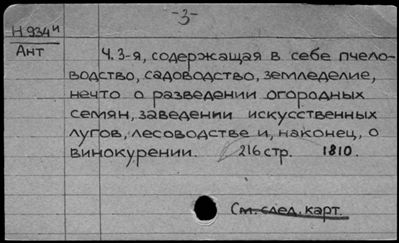 -3-
Н 934 и
Ант
Ч. 3-я, содержащая в себе пчело-
водство, садоводство, земледелие,
нечто о разведении огородных
семян, заведении искусственных
лугов, лесоводстве и, наконец, о
винокурении. 216 стр. 1810.
См. след. карт.